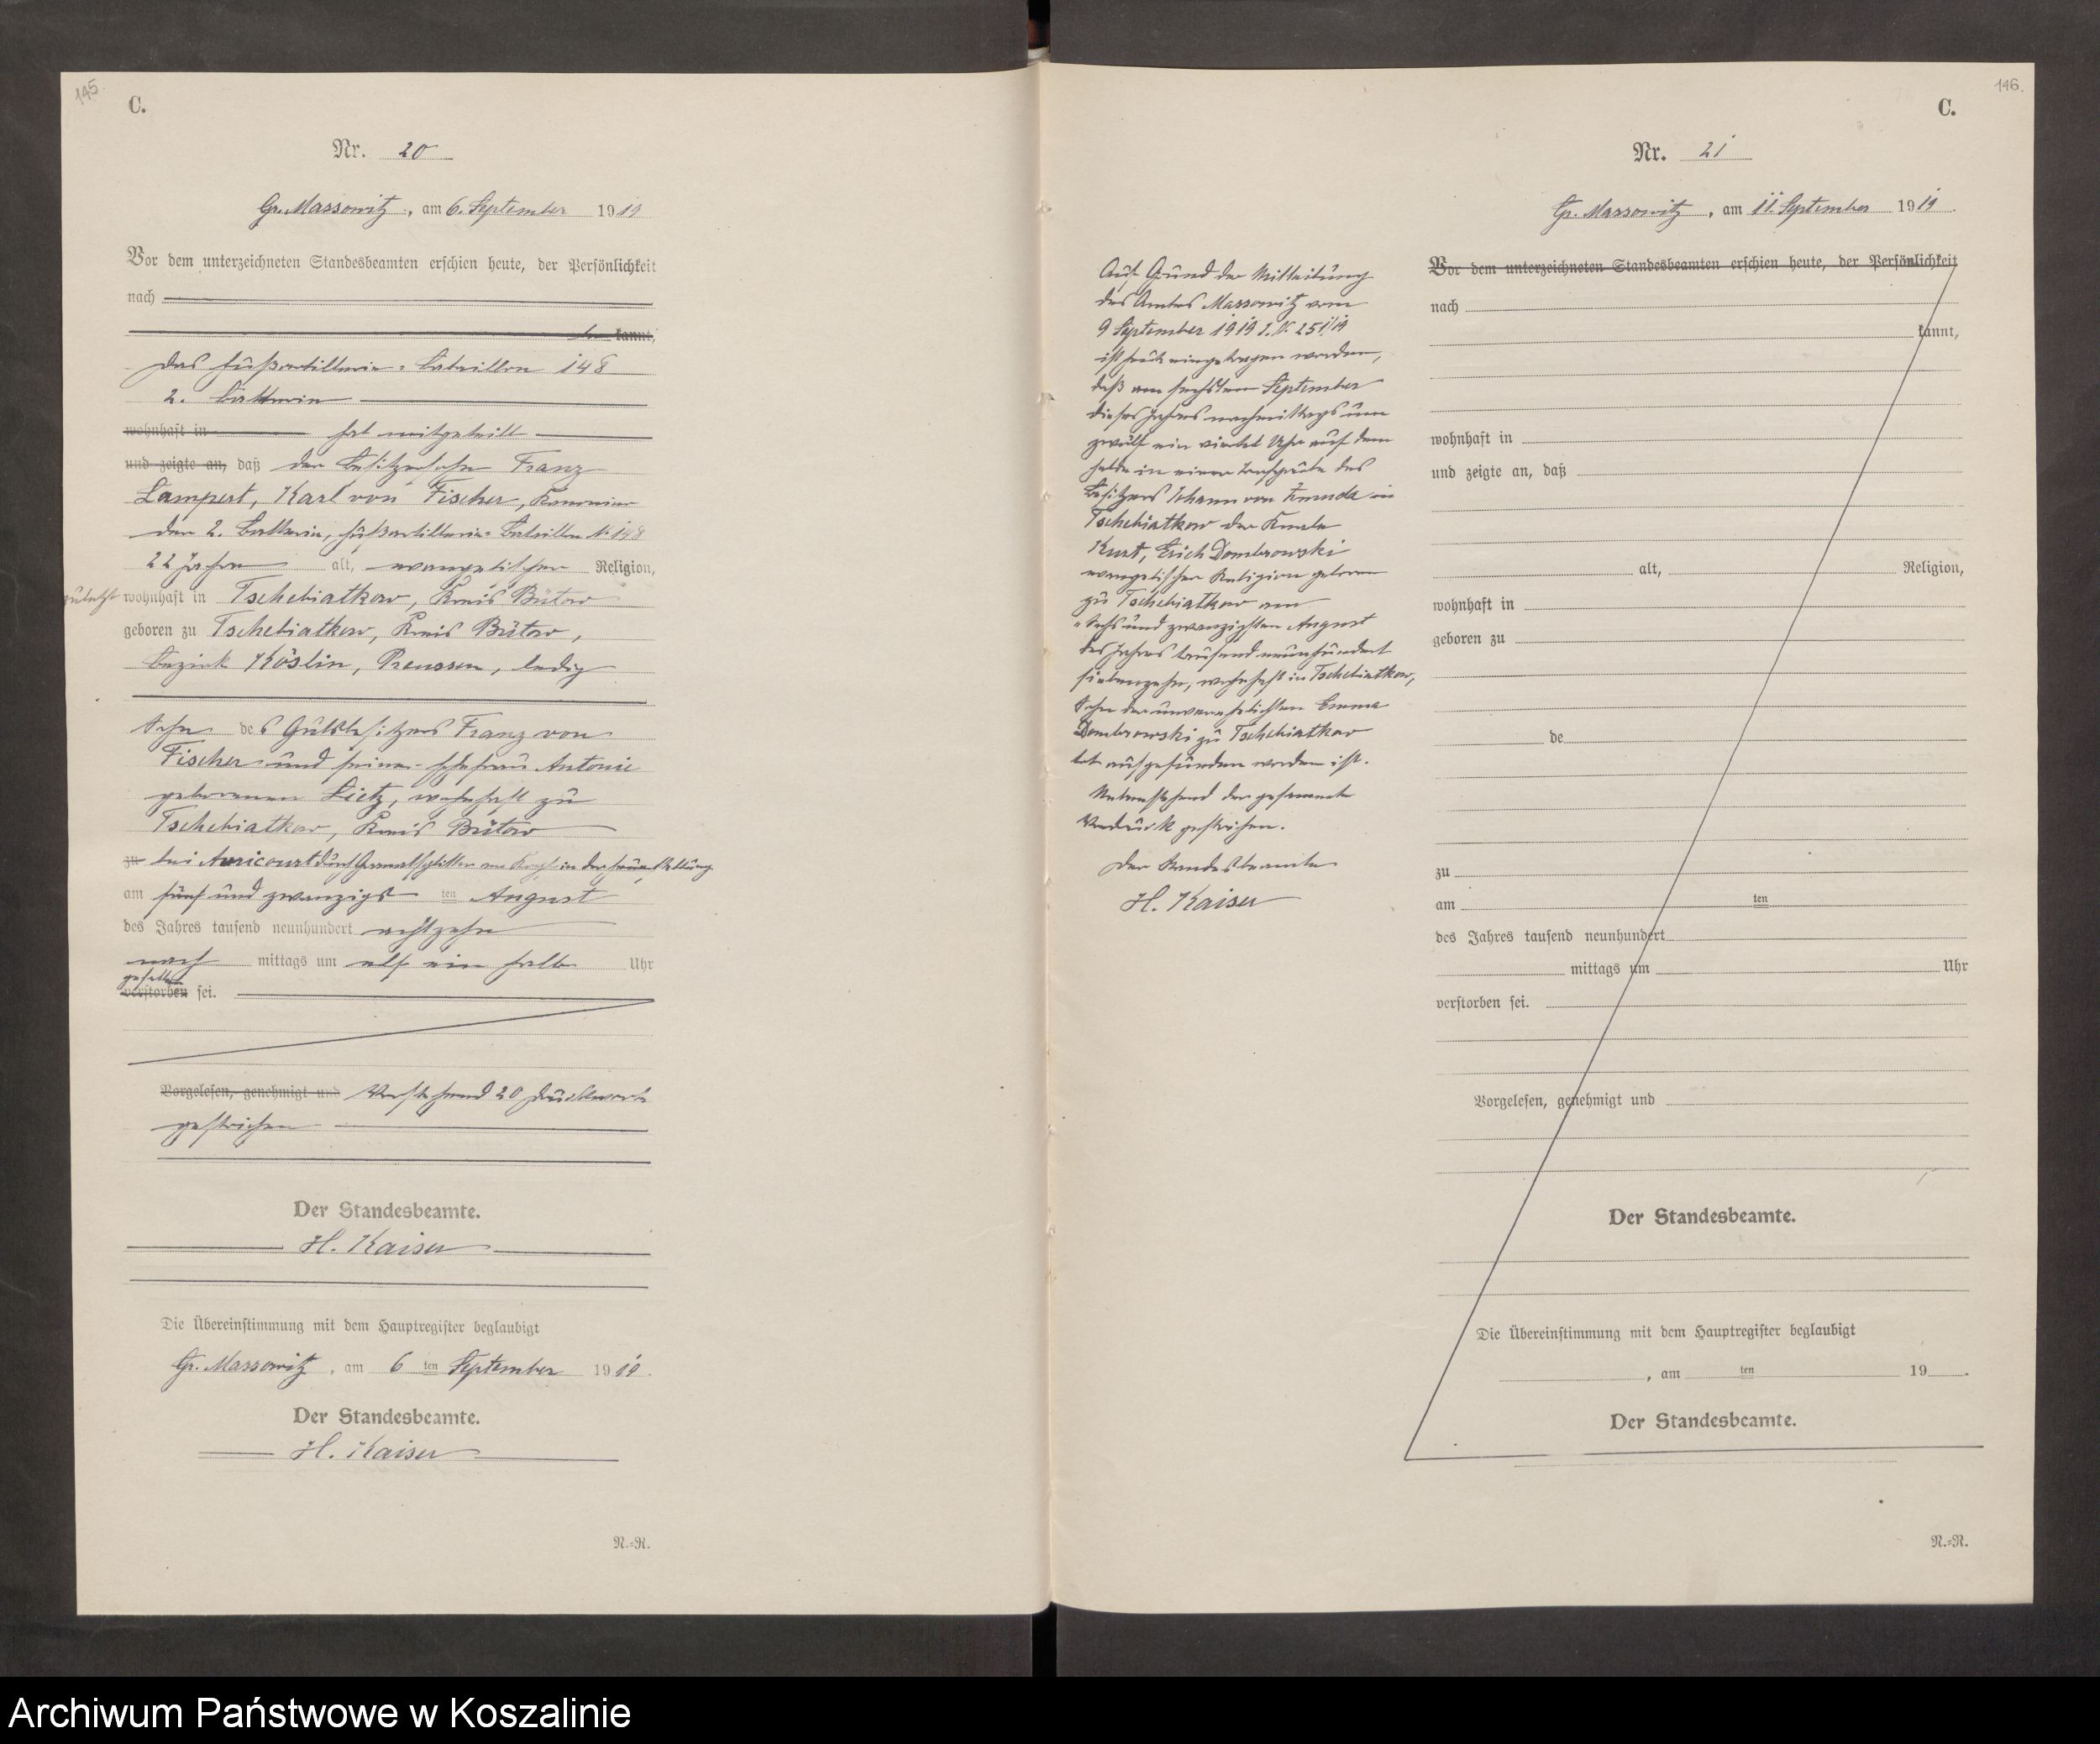 145
C.
Nr. 20
Gr. Massowitz, am 6. September 1919
Vor dem unterzeichneten Standesbeamten erschien heute, der Persönlichkeit
nach
kannt,
Das Fußartillerie-Bataillon 148
2. Batterie
wohnhaft in hat mitgeteilt
und zeigte an, daß der Besitzersohn Franz
Lampert, Karl von Fischer, Kanonier
der 2. Batterie, Fußartillerie-Bataillon N. 148
22 Jahre alt, evangelischer Religion,
zuletzt wohnhaft in Tschebiatkow, Kreis Bütow
geboren zu Tschebiatkow, Kreis Bütow,
Bezirk Köslin, Preussen, ledig
Sohn des Gutsbesitzers Franz von
Fischer und seiner Ehefrau Antonie
geborenen Lietz, wohnhaft zu
Tschebiatkow, Kreis Bütow
zu bei Avricourt durch Granatsplitter am Kopf in der Stellung
am fünf und zwanzigsten August
des Jahres tausend neunhundert achtzehn
nach mittags um elf ein halb Uhr
gefallen
verstorben sei.
Vorgelesen, genehmigt und Vorstehend 20 Druckworte
gestrichen
Der Standesbeamte.
H. Kaiser
Die Übereinstimmung mit dem Hauptregister beglaubigt
Gr. Massowitz, am 6 ten September 1919.
Der Standesbeamte.
H. Kaiser
N.-R.
146.
C.
Nr. 21
Gr. Massowitz, am 11. September 1919.
Auf Grund der Mitteilung
des Amtes Massowitz vom
9 September 1919
ist heute eingetragen worden,
daß am sechsten September
dieses Jahres nachmittags um
zwölf ein viertel Uhr auf dem
Felde in einer Torfgrube des
Besitzers Johann von in
Tschebiatkow der Knabe
Kurt, Erich Dombrowski
evangelischer Religion geboren
zu Tschebiatkow am
Sechs und zwanzigsten August
des Jahres tausend neunhundert
siebenzehn, wohnhaft in Tschebiatkow,
Sohn der unverehelichten Emma
Dombrowski zu Tschebiatkow
tot aufgefunden worden ist.
Nebenstehend der gesammte
Vordruck gestrichen.
Der Standesbeamte
H. Kaiser
Vor dem unterzeichneten Standesbeamten erschien heute, der Persönlichkeit
nach
kannt,
wohnhaft in
und zeigte an, daß
alt, Religion,
wohnhaft in
geboren zu
de
zu
am ten
des Jahres tausend neunhundert
mittags um Uhr
verstorben sei.
Vorgelesen, genehmigt und
Der Standesbeamte.
Die Übereinstimmung mit dem Hauptregister beglaubigt
, am ten 19 .
Der Standesbeamte.
N.-R.
Archiwum Państwowe w Koszalinie